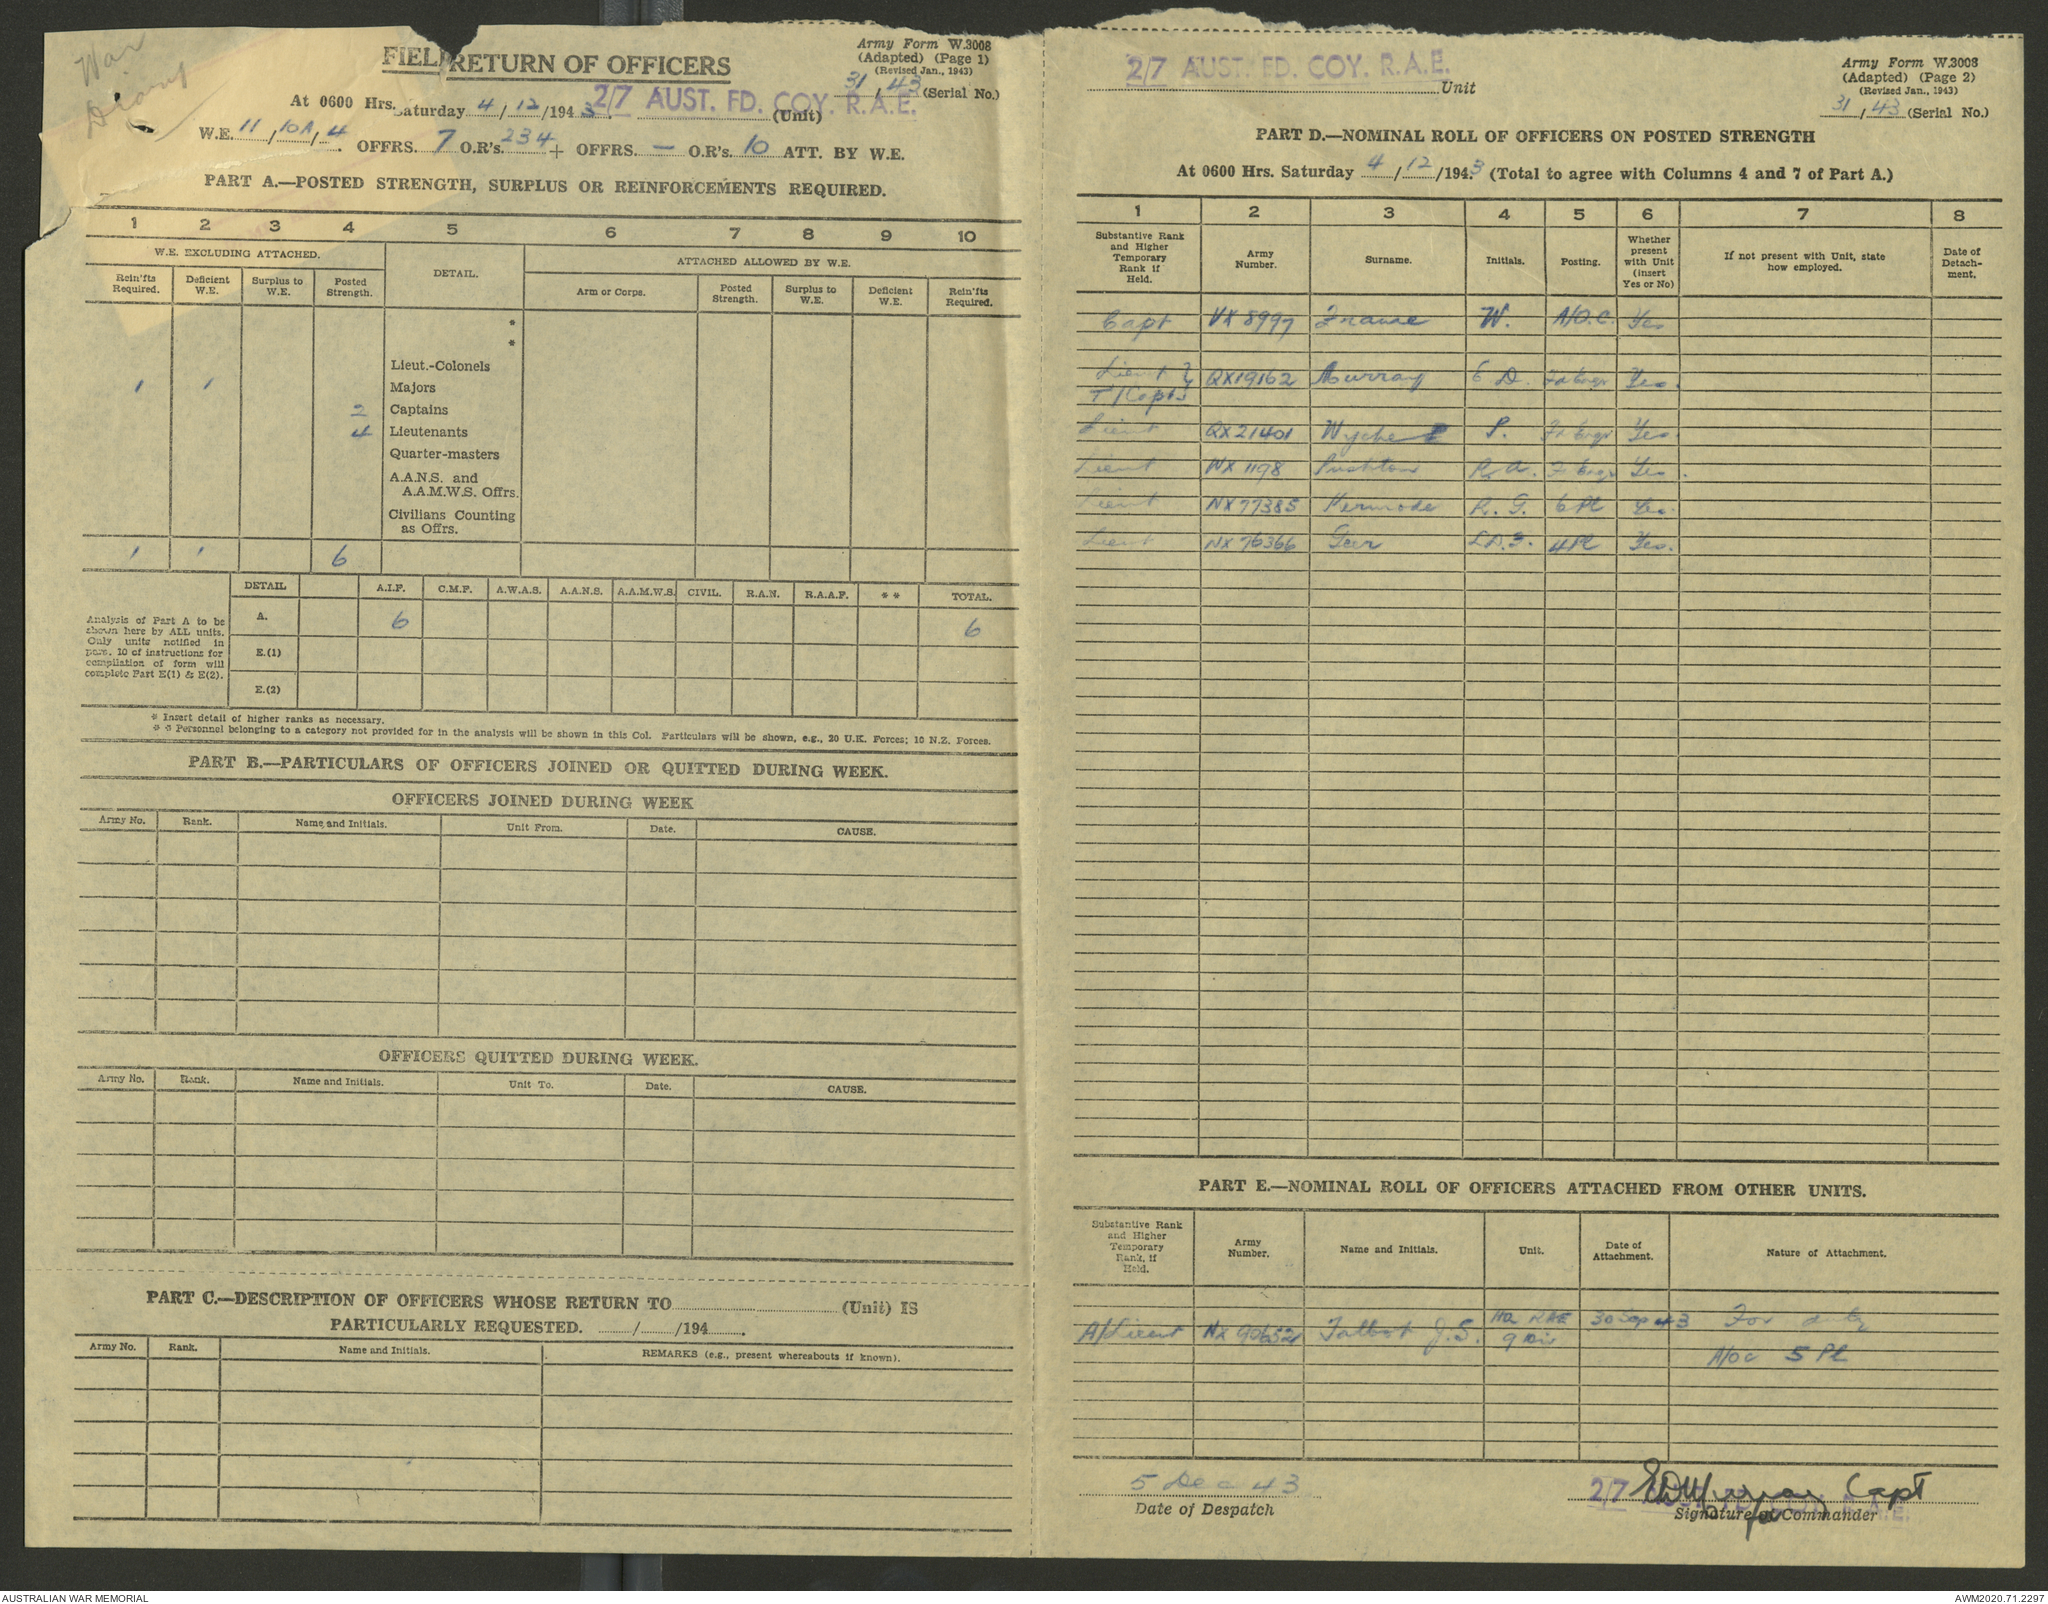 War
Diary
FIELD RETURN OF OFFICERS
Army Form W.3008
(Adapted) (Page 1)
(Revised Jan., 1943)
31/43 (Serial No.)
At 0600 Hrs. Saturday 4/12/1943. 2/7 AUST. FD. COY. R.A.E. (Unit)
W.E. 11/10A/4. OFFRS. 7 O.R's. 234 + OFFRS. — O.R's. 10 ATT. BY W.E.
PART A.—POSTED STRENGTH, SURPLUS OR REINFORCEMENTS REQUIRED.
1 2 3 4 5 6 7 8 9 10
W.E. EXCLUDING ATTACHED. DETAIL. ATTACHED ALLOWED BY W.E.
Rein'fts Required. Deficient W.E. Surplus to W.E. Posted Strength. Arm or Corps. Posted Strength. Surplus to W.E. Deficient W.E. Rein'fts Required.
*
*
Lieut.-Colonels
1 1 Majors
2 Captains
4 Lieutenants
Quarter-masters
A.A.N.S. and
A.A.M.W.S. Offrs.
Civilians Counting
as Offrs.
1 1 6
DETAIL A.I.F. C.M.F. A.W.A.S. A.A.N.S. A.A.M.W.S. CIVIL. R.A.N. R.A.A.F. ** TOTAL.
Analysis of Part A to be
shown here by ALL units.
Only units notified in
para. 10 of instructions for
compilation of form will
complete Part E(1) & E(2).
A. 6 6
E.(1)
E.(2)
* Insert detail of higher ranks as necessary.
** Personnel belonging to a category not provided for in the analysis will be shown in this Col. Particulars will be shown, e.g., 20 U.K. Forces; 10 N.Z. Forces.
PART B.—PARTICULARS OF OFFICERS JOINED OR QUITTED DURING WEEK.
OFFICERS JOINED DURING WEEK
Army No. Rank. Name and Initials. Unit From. Date. CAUSE.
OFFICERS QUITTED DURING WEEK.
Army No. Rank. Name and Initials. Unit To. Date. CAUSE.
PART C.—DESCRIPTION OF OFFICERS WHOSE RETURN TO (Unit) IS
PARTICULARLY REQUESTED. / /194 .
Army No. Rank. Name and Initials. REMARKS (e.g., present whereabouts if known).
2/7 AUST. FD. COY. R.A.E. Unit
Army Form W.3008
(Adapted) (Page 2)
(Revised Jan., 1943)
31/43 (Serial No.)
PART D.—NOMINAL ROLL OF OFFICERS ON POSTED STRENGTH
At 0600 Hrs. Saturday 4/12/1943 (Total to agree with Columns 4 and 7 of Part A.)
1 2 3 4 5 6 7 8
Substantive Rank and Higher Temporary Rank if Held. Army Number. Surname. Initials. Posting. Whether present with Unit (insert Yes or No) If not present with Unit, state how employed. Date of Detachment.
Capt VX 8997 Frame W. A/O.C. Yes
Lieut }
T/Capt } QX19162 Murray E D. Fd Engr Yes.
Lieut QX21401 Wyche P. Fd Engr Yes.
Lieut WX 1198 Rushton R. A. Fd Engr Yes.
Lieut NX77385 Kermode R. G. 6 Pl Yes.
Lieut NX 76366 Geer L.D.S. 4 Pl Yes.
PART E.—NOMINAL ROLL OF OFFICERS ATTACHED FROM OTHER UNITS.
Substantive Rank and Higher Temporary Rank, if Held. Army Number. Name and Initials. Unit. Date of Attachment. Nature of Attachment.
A/Lieut NX 90652 Talbot J.S. HQ RAE 9 Div 30 Sep 43 For duty
A/OC 5 Pl
5 Dec 43
Date of Despatch
2/7 EDMurray Capt
for
Signature of Commander
AUSTRALIAN WAR MEMORIAL
AWM2020.71.2297